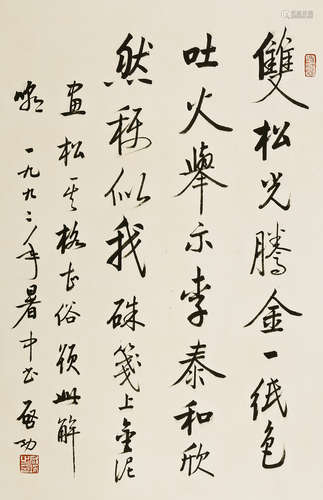 雙松光騰金一紙色
吐火舉示李泰和欣
然稱似我硃箋上金泥
畫松其格甚俗題此解
嘲一九九二年暑中書啟功